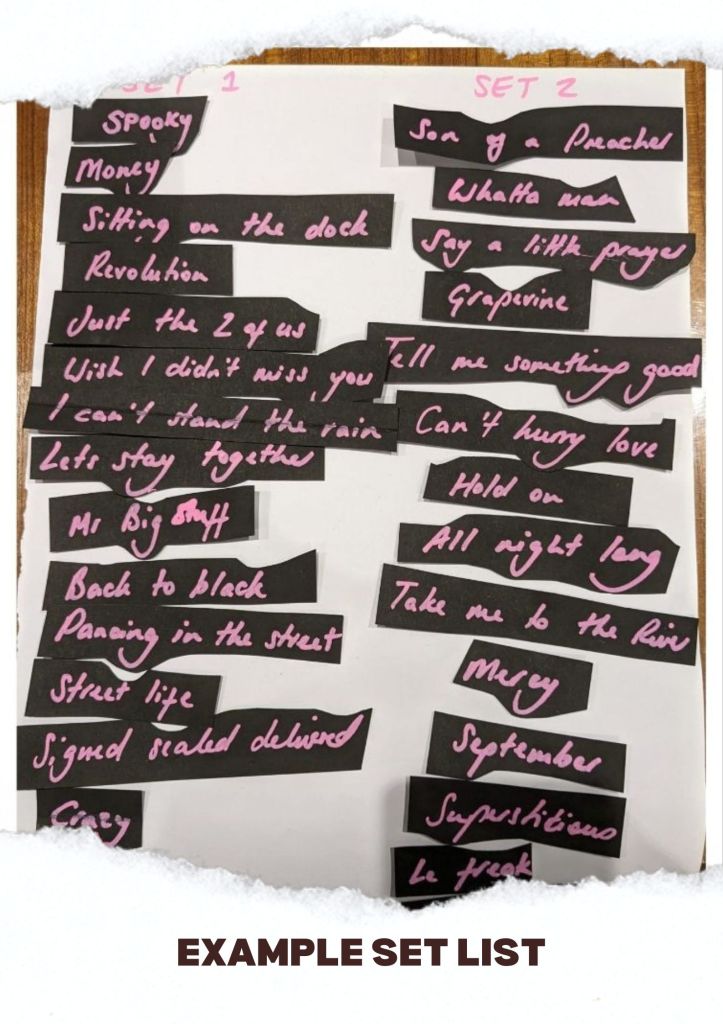 SET 1
Spooky
Money
Sitting on the dock
Revolution
Just the 2 of us
Wish I didn't miss you
I can't stand the rain
Lets stay together
Mr Big stuff
Back to black
Dancing in the street
Street life
Signed sealed delivered
Crazy
SET 2
Son of a Preacher
Whatta man
Say a little prayer
Grapevine
Tell me something good
Can't hurry love
Hold on
All night long
Take me to the River
Mercy
September
Superstitious
Le freak
EXAMPLE SET LIST